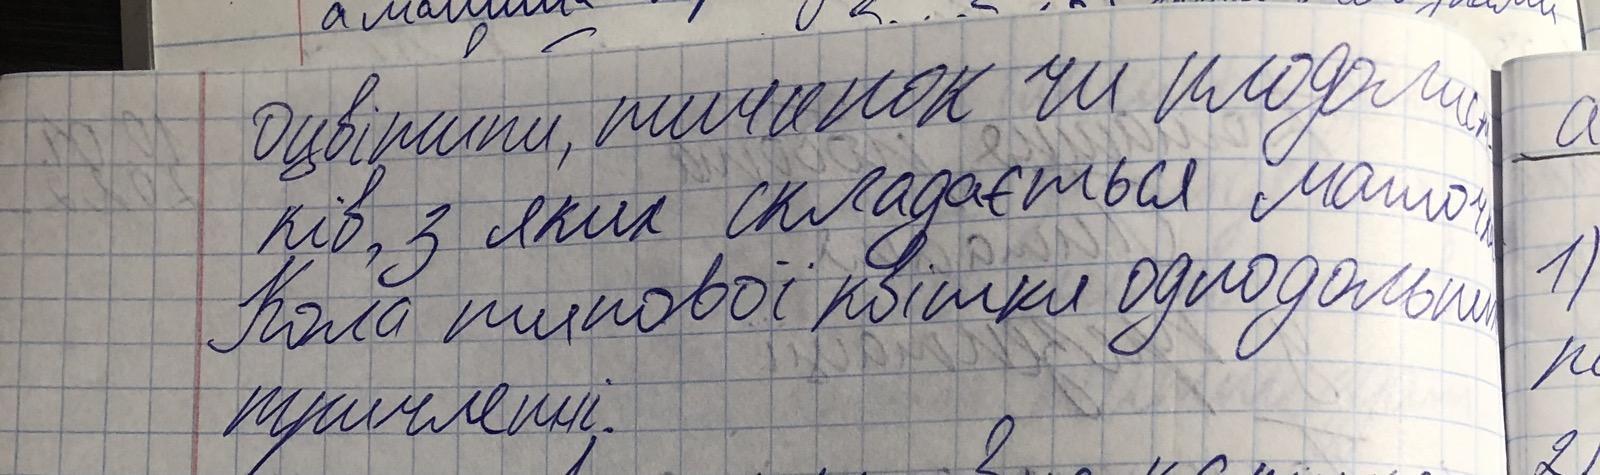 оцвітини, тичинок чи плодолист-
ків, з яких складається маточк
Кола типової квітки однодольних
тричленні.
а
1)
2)